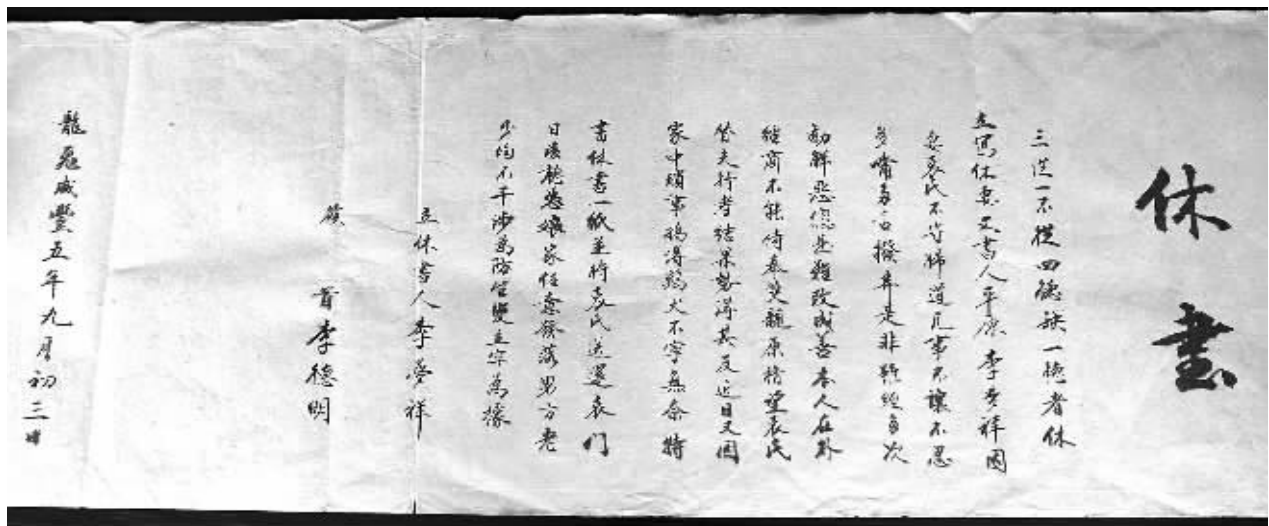 休書
三從一不從四德缺一德者休
立寫休妻文書人平原李學祥因
妻袁氏不守婦道凡事不讓不忍
多嘴多舌撥弄是非雖經多次
勸解惡習是難改成善本人在外
經商不能侍奉雙親原指望袁氏
替夫行孝結果勢得其反近日又因
家中瑣事鬧得鷄犬不寧無奈特
書休書一紙並將袁氏送還袁门
日後聽憑娘家任意發落男方老
少均不干涉為防生變立字為據
立休書人李學祥
簇首李德明
龍飛咸豐五年九月初三日